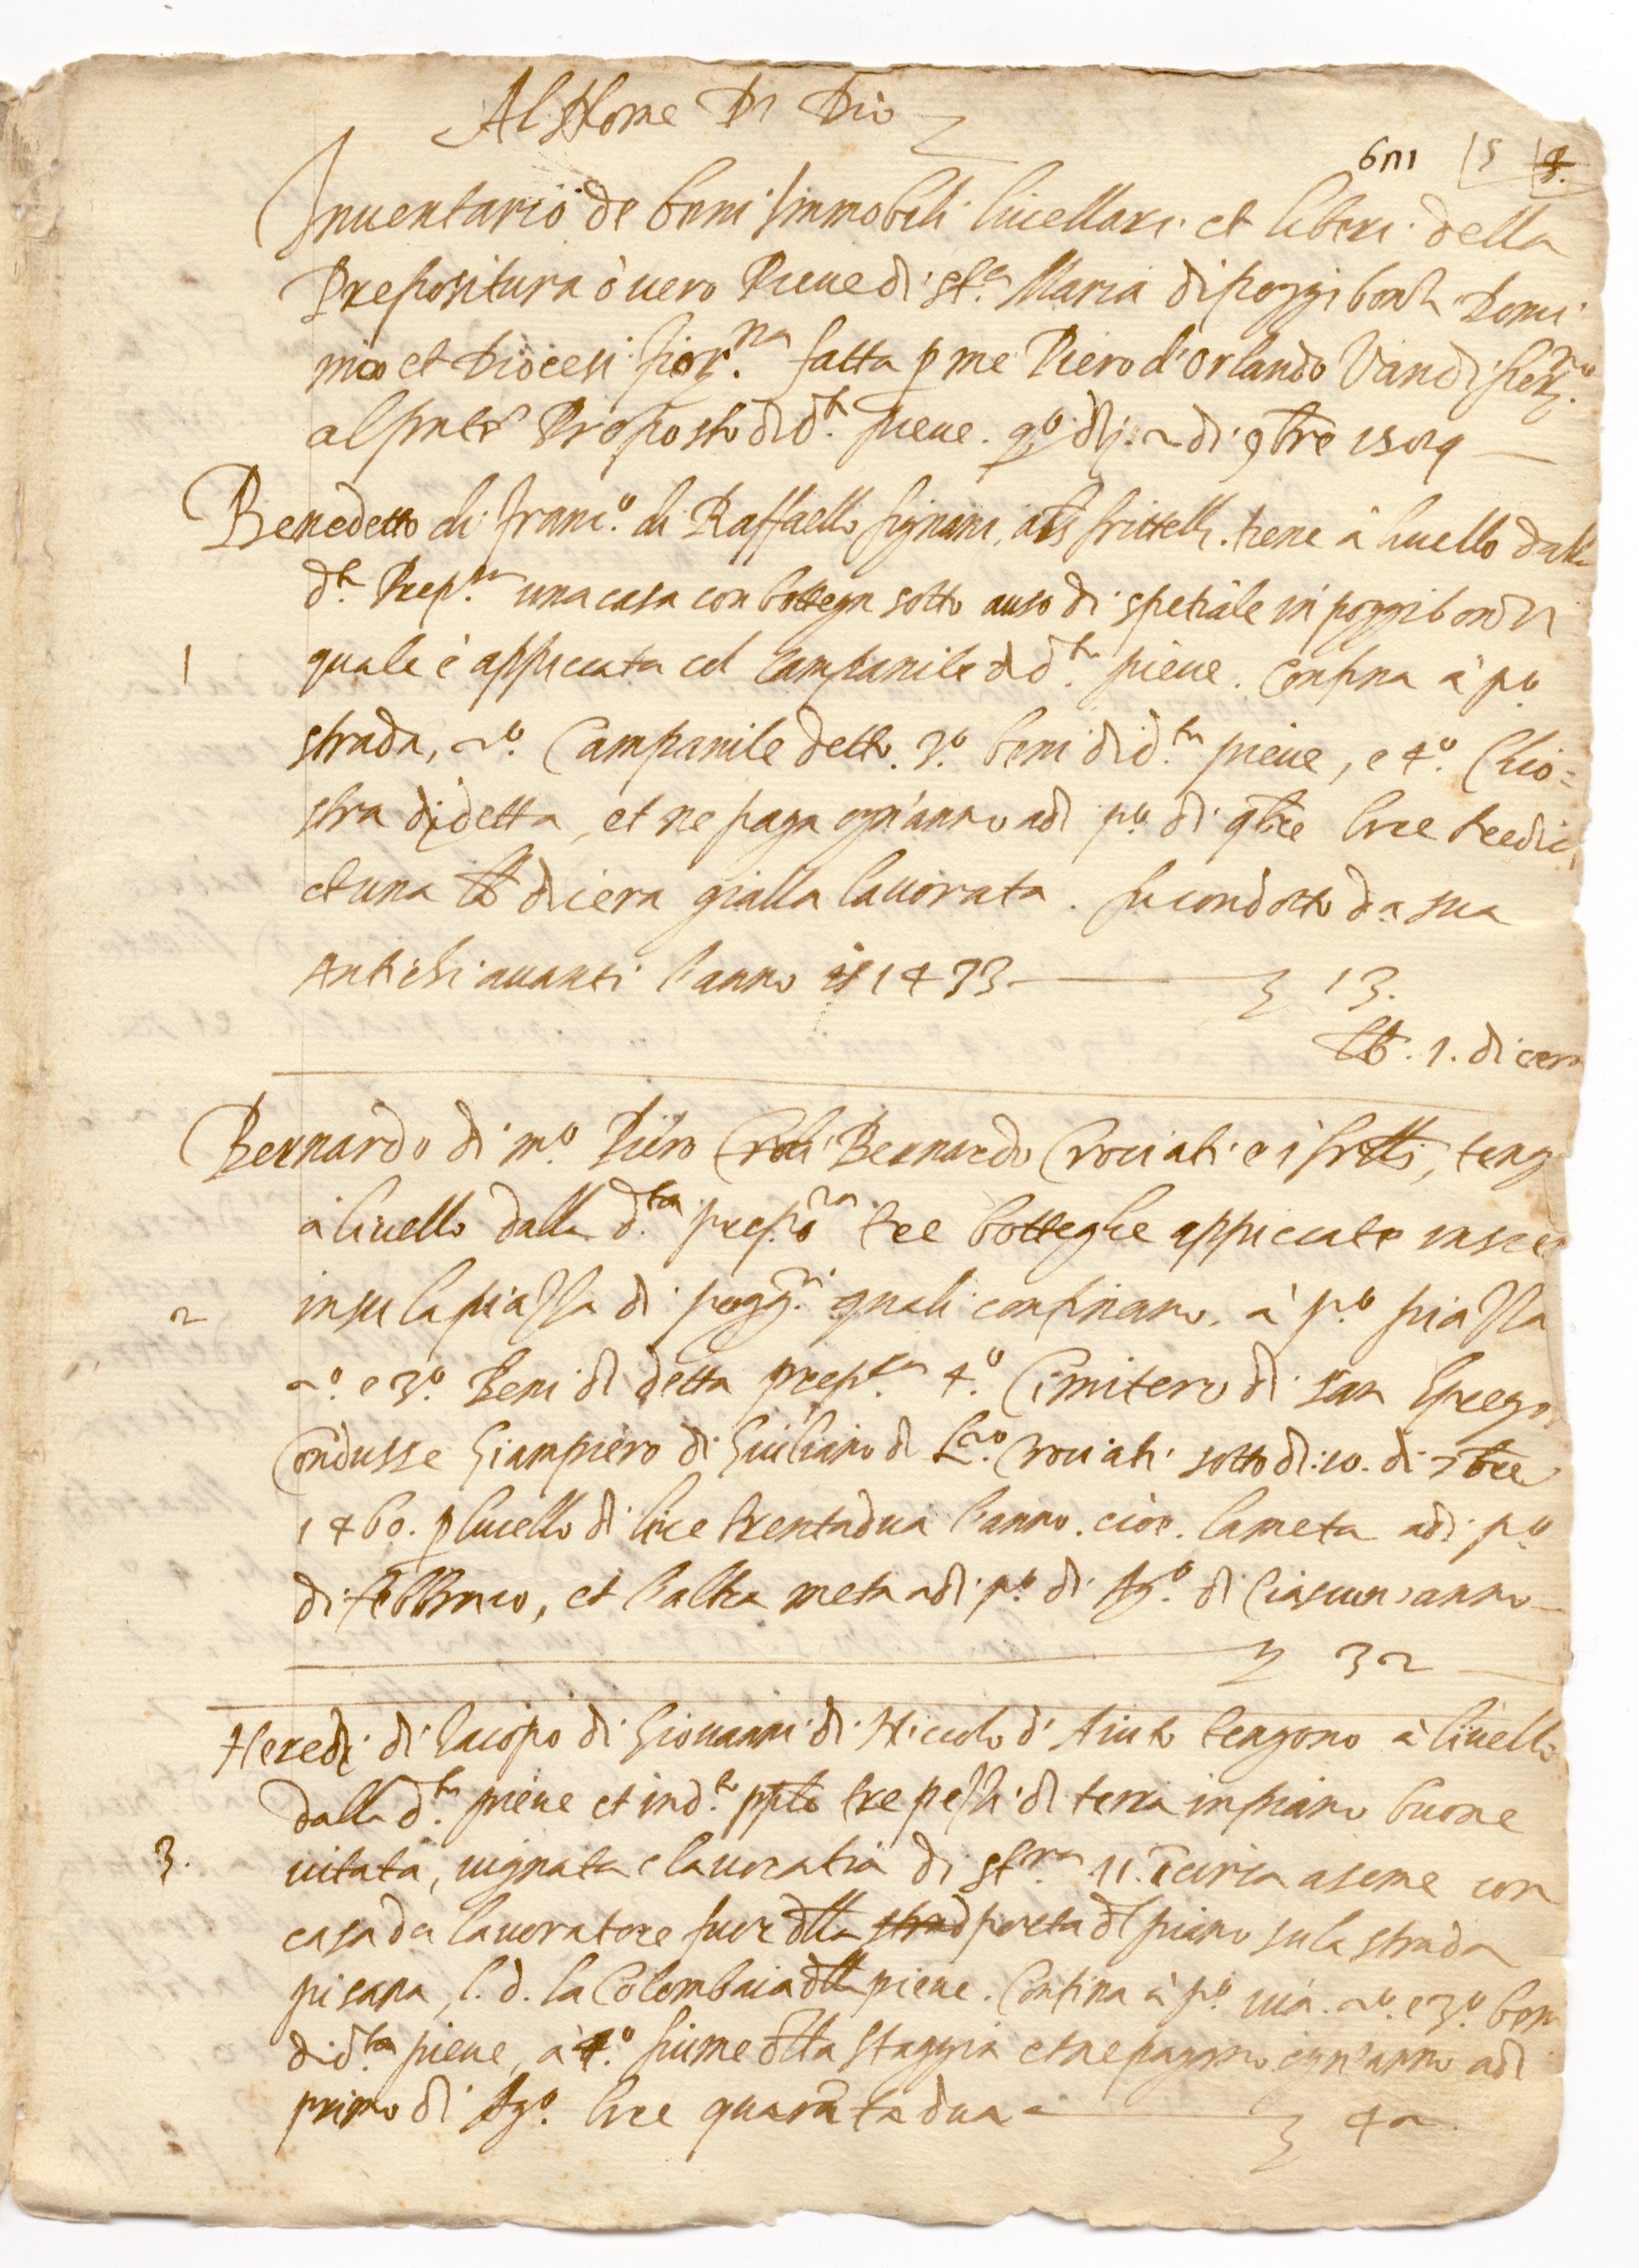 Al Nome Di Dio
6m 15
Inventario de beni Immobili livellari et liberi della
Prepositura ò vero Pieve di Sta Maria di poggibonzi Domi
nio et Diocesi fior.na fatta p me Piero d'Orlando Vandi
Proposto di d.ta pieve. di 2 di 9bre
Benedetto di Franc.o di Raffaello fignani, als frittelli. tiene à livello dalla
d.ta Prep.ra una casa con bottega sotto a uso di spetiale in poggibonzi
1 quale è appiccata col Campanile di d.ta pieve. Confina à p.o
strada, 2.o Campanile detto. 3.o beni di d.ta pieve, e 4.o Chio=
stra di detta, et ne paga ogn'anno adi p.o di 9bre lire tredici
et una lb di cera gialla lavorata. fu condotto da sua
Antichi avanti l'anno 1433 13.
lb. 1. di cera
Bernardo di m.o Piero Bernardo Crociati e i frelli, teng
à livello dalla d.ta prepo.ra tre botteghe appiccate
2 in su la piazza di pogg.i quali confinano. à p.o piazza
2.o e 3.o Beni di detta prep.ra 4.o Cimitero di san Grego
Condusse Giampiero di Giuliano di Crociati sotto di .10. di 7bre
1460. p livello di lire trentadua l'anno. cioè. la meta adi p.o
di Febbraio, et l'altra meta adi p.o di Ag.o di Ciascun anno
32
Heredi di Iacopo di Giovanni di Niccolo d' Aiuto tengono à livello
dalla d.ta pieve et in d.to pplo tre pezzi di terra in piano buone
3. vitata, vignata e lavoratia di st.ra 11. circa asieme con
casa da lavoratore fuor dlla strad porta dl piano su la strada
pisana, l. d. la Colombaia dlla pieve. Confina à p.o via. 2.o e 3.o beni
di d.ta pieve, à 4.o fiume dlla Staggia et ne pagono ogn'anno adi
primo di Ag.o lire quarantadua 42